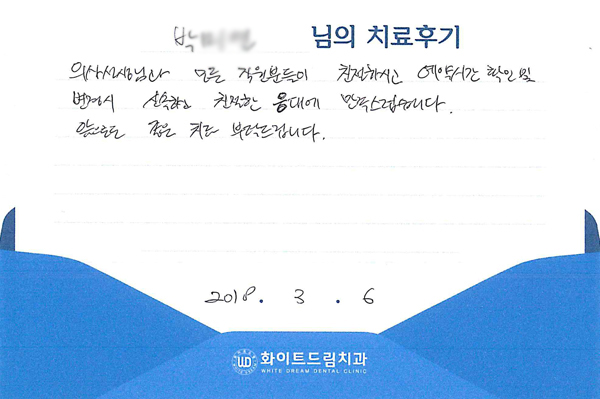 박 님의 치료후기
의사선생님과 모든 직원분들이 친절하시고 예약시간 확인 및
변경시 신속하고 친절한 응대에 만족스럽습니다.
앞으로도 좋은 치료 부탁드립니다.
2018. 3. 6
WD 화이트드림치과
WHITE DREAM DENTAL CLINIC